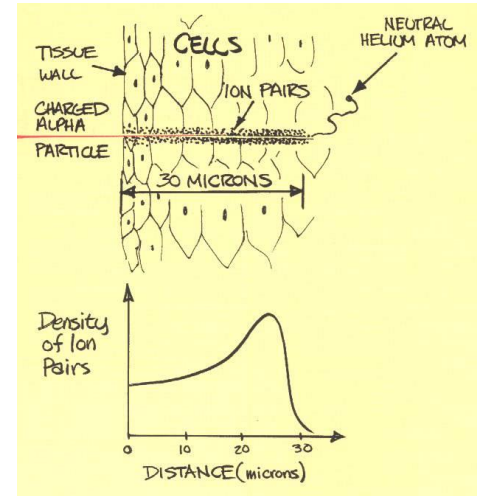 CELLS
NEUTRAL
HELIUM ATOM
TISSUE
WALL
ION PAIRS
CHARGED
ALPHA
PARTICLE
30 MICRONS
Density
of Ion
Pairs
0 10 20 30
DISTANCE (microns)